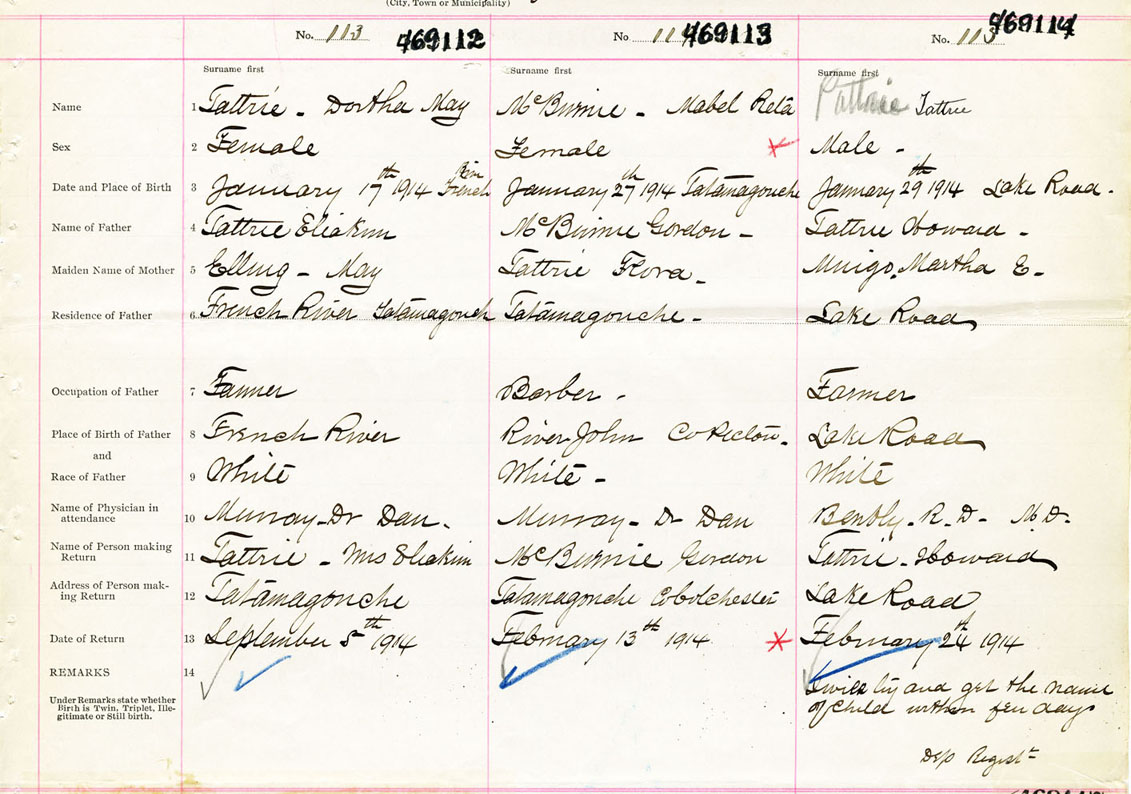 (City, Town or Municipality)
No. 113 469112 No 114 469113 No. 115 469114
Surname first Surname first Surname first
Name 1 Tattrie - Dortha May McBurnie - Mabel Reta Pattrie Tattrie
Sex 2 Female Female Male -
Date and Place of Birth 3 January 17th 1914 French River January 27th 1914 Tatamagouche January 29th 1914 Lake Road -
Name of Father 4 Tattrie Eliakim McBurnie Gordon - Tattrie Howard -
Maiden Name of Mother 5 Elling - May Tattrie Flora - Mingo, Martha E -
Residence of Father 6 French River Tatamagouch Tatamagouche - Lake Road
Occupation of Father 7 Farmer Barber - Farmer
Place of Birth of Father 8 French River River John Co Pictou - Lake Road
and
Race of Father 9 White White - White
Name of Physician in
attendance 10 Murray - Dr Dan - Murray - Dr Dan R. D - M. D.
Name of Person making
Return 11 Tattrie - Mrs Eliakim McBurnie Gordon Tattrie - Howard
Address of Person mak-
ing Return 12 Tatamagouche Tatamagouche Co Colchester Lake Road
Date of Return 13 September 5th 1914 February 13th 1914 February 24th 1914
REMARKS 14
Under Remarks state whether
Birth is Twin, Triplet, Ille-
gitimate or Still birth.
I will try and get the name
of child within few days
Dep Regist